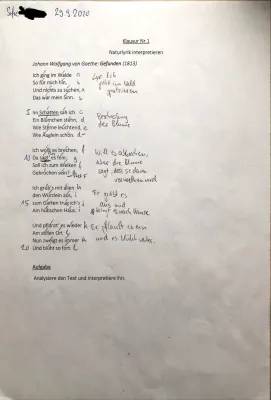 29.9.2020
Klausur Nr.1
Naturlyrik interpretieren
Johann Wolfgang von Goethe: Gefunden (1813)
Ich ging im Walde a Lyr. Ich
So für mich hin, b geht im Wald
Und nichts zu suchen, a spazieren
Das war mein Sinn. b
Im Schatten sah ich c
5 Ein Blümchen stehn, d Beschreibung
Wie Sterne leuchtend, e der Blume
Wie Äuglein schön. d
Ich wollt es brechen, f Will es abbrechen,
10 Da sagt es fein: g Aber die Blume
Soll ich zum Welken f sagt, dass sie dann
Gebrochen sein? g verwelken wird
Ich grub's mit allen h Er gräbt es
den Würzlein aus, i aus und
15 zum Garten trug ich's j
Am hübschen Haus. i nach Hause
Und pflanzt' es wieder k Er pflanzt es ein
Am stillen Ort; l und es blüht weiter.
Nun zweigt es immer k
20 Und blüht so fort. l
Aufgabe
Analysiere den Text und interpretiere ihn.